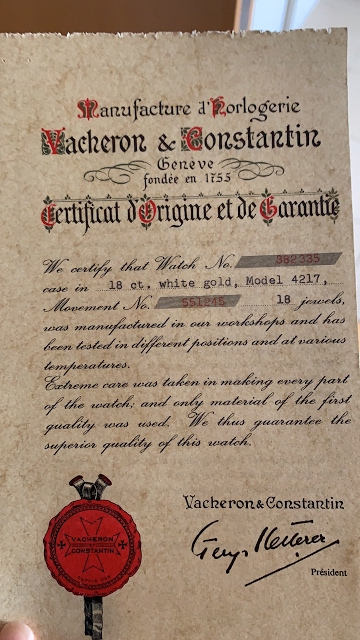 Manufacture d'Horlogerie
Vacheron & Constantin
Genève
fondée en 1755
Certificat d'Origine et de Garantie
We certify that Watch No. 382335
case in 18 ct. white gold, Model 4217,
Movement No. 551245 18 jewels,
was manufactured in our workshops and has
been tested in different positions and at various
temperatures.
Extreme care was taken in making every part
of the watch; and only material of the first
quality was used. We thus guarantee the
superior quality of this watch.
Vacheron & Constantin
Président
VACHERON
ET
CONSTANTIN